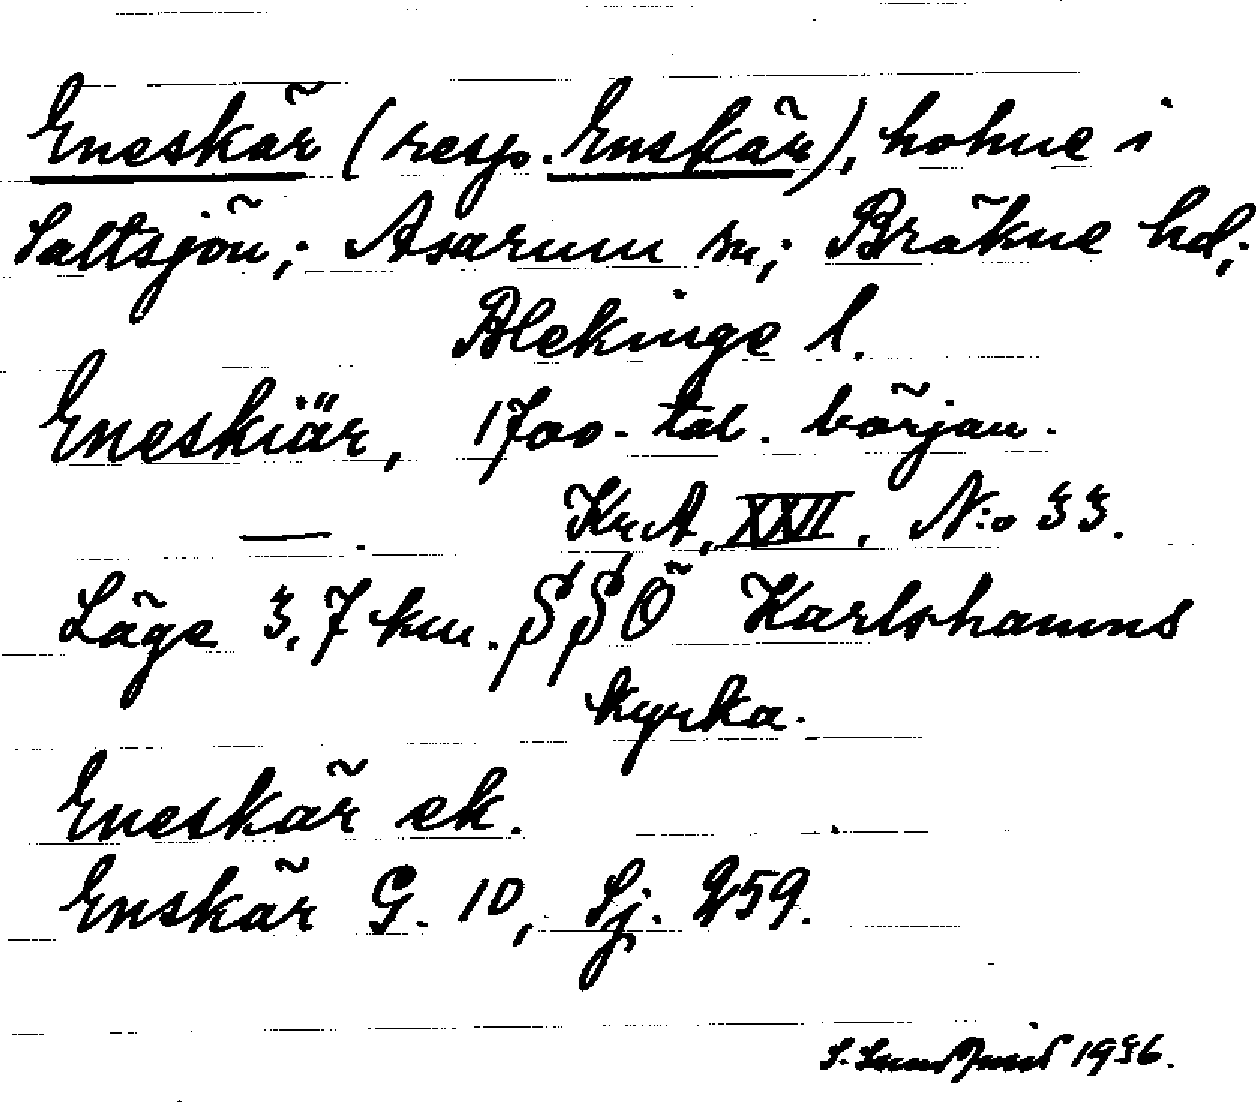 Eneskär (resp. Enskär), holme i
Saltsjön; Asarum sn; Bräkne hd;
Blekinge l.
Eneskiär, 1700-tal. början.
KrA, XXVI, N:o 33.
Läge 3,7 km. SSÖ Karlshamns
kyrka.
Eneskär ek.
Enskär G. 10, Sj. 259.
1936.